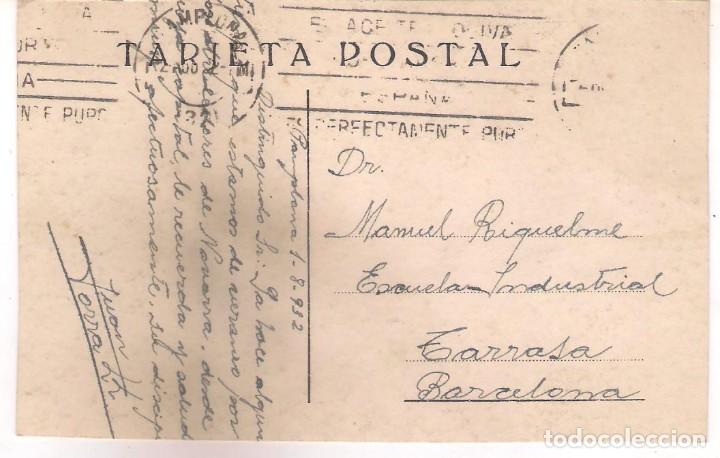 TARJETA POSTAL
EL ACEITE OLIVA
ESPAÑA
PERFECTAMENTE PUR
NTE PURO
Pamplona 1-8-932
Distinguido Sr: Ya hace algun
que estamos de veraneo por
alrededores de Navarra. desde
capital, le recuerda y salud
afectuosamente, su discip
Juan
Torra
Dr.
Manuel Riquelme
Escuela Industrial
Tarrasa
Barcelona
todocoleccion.net